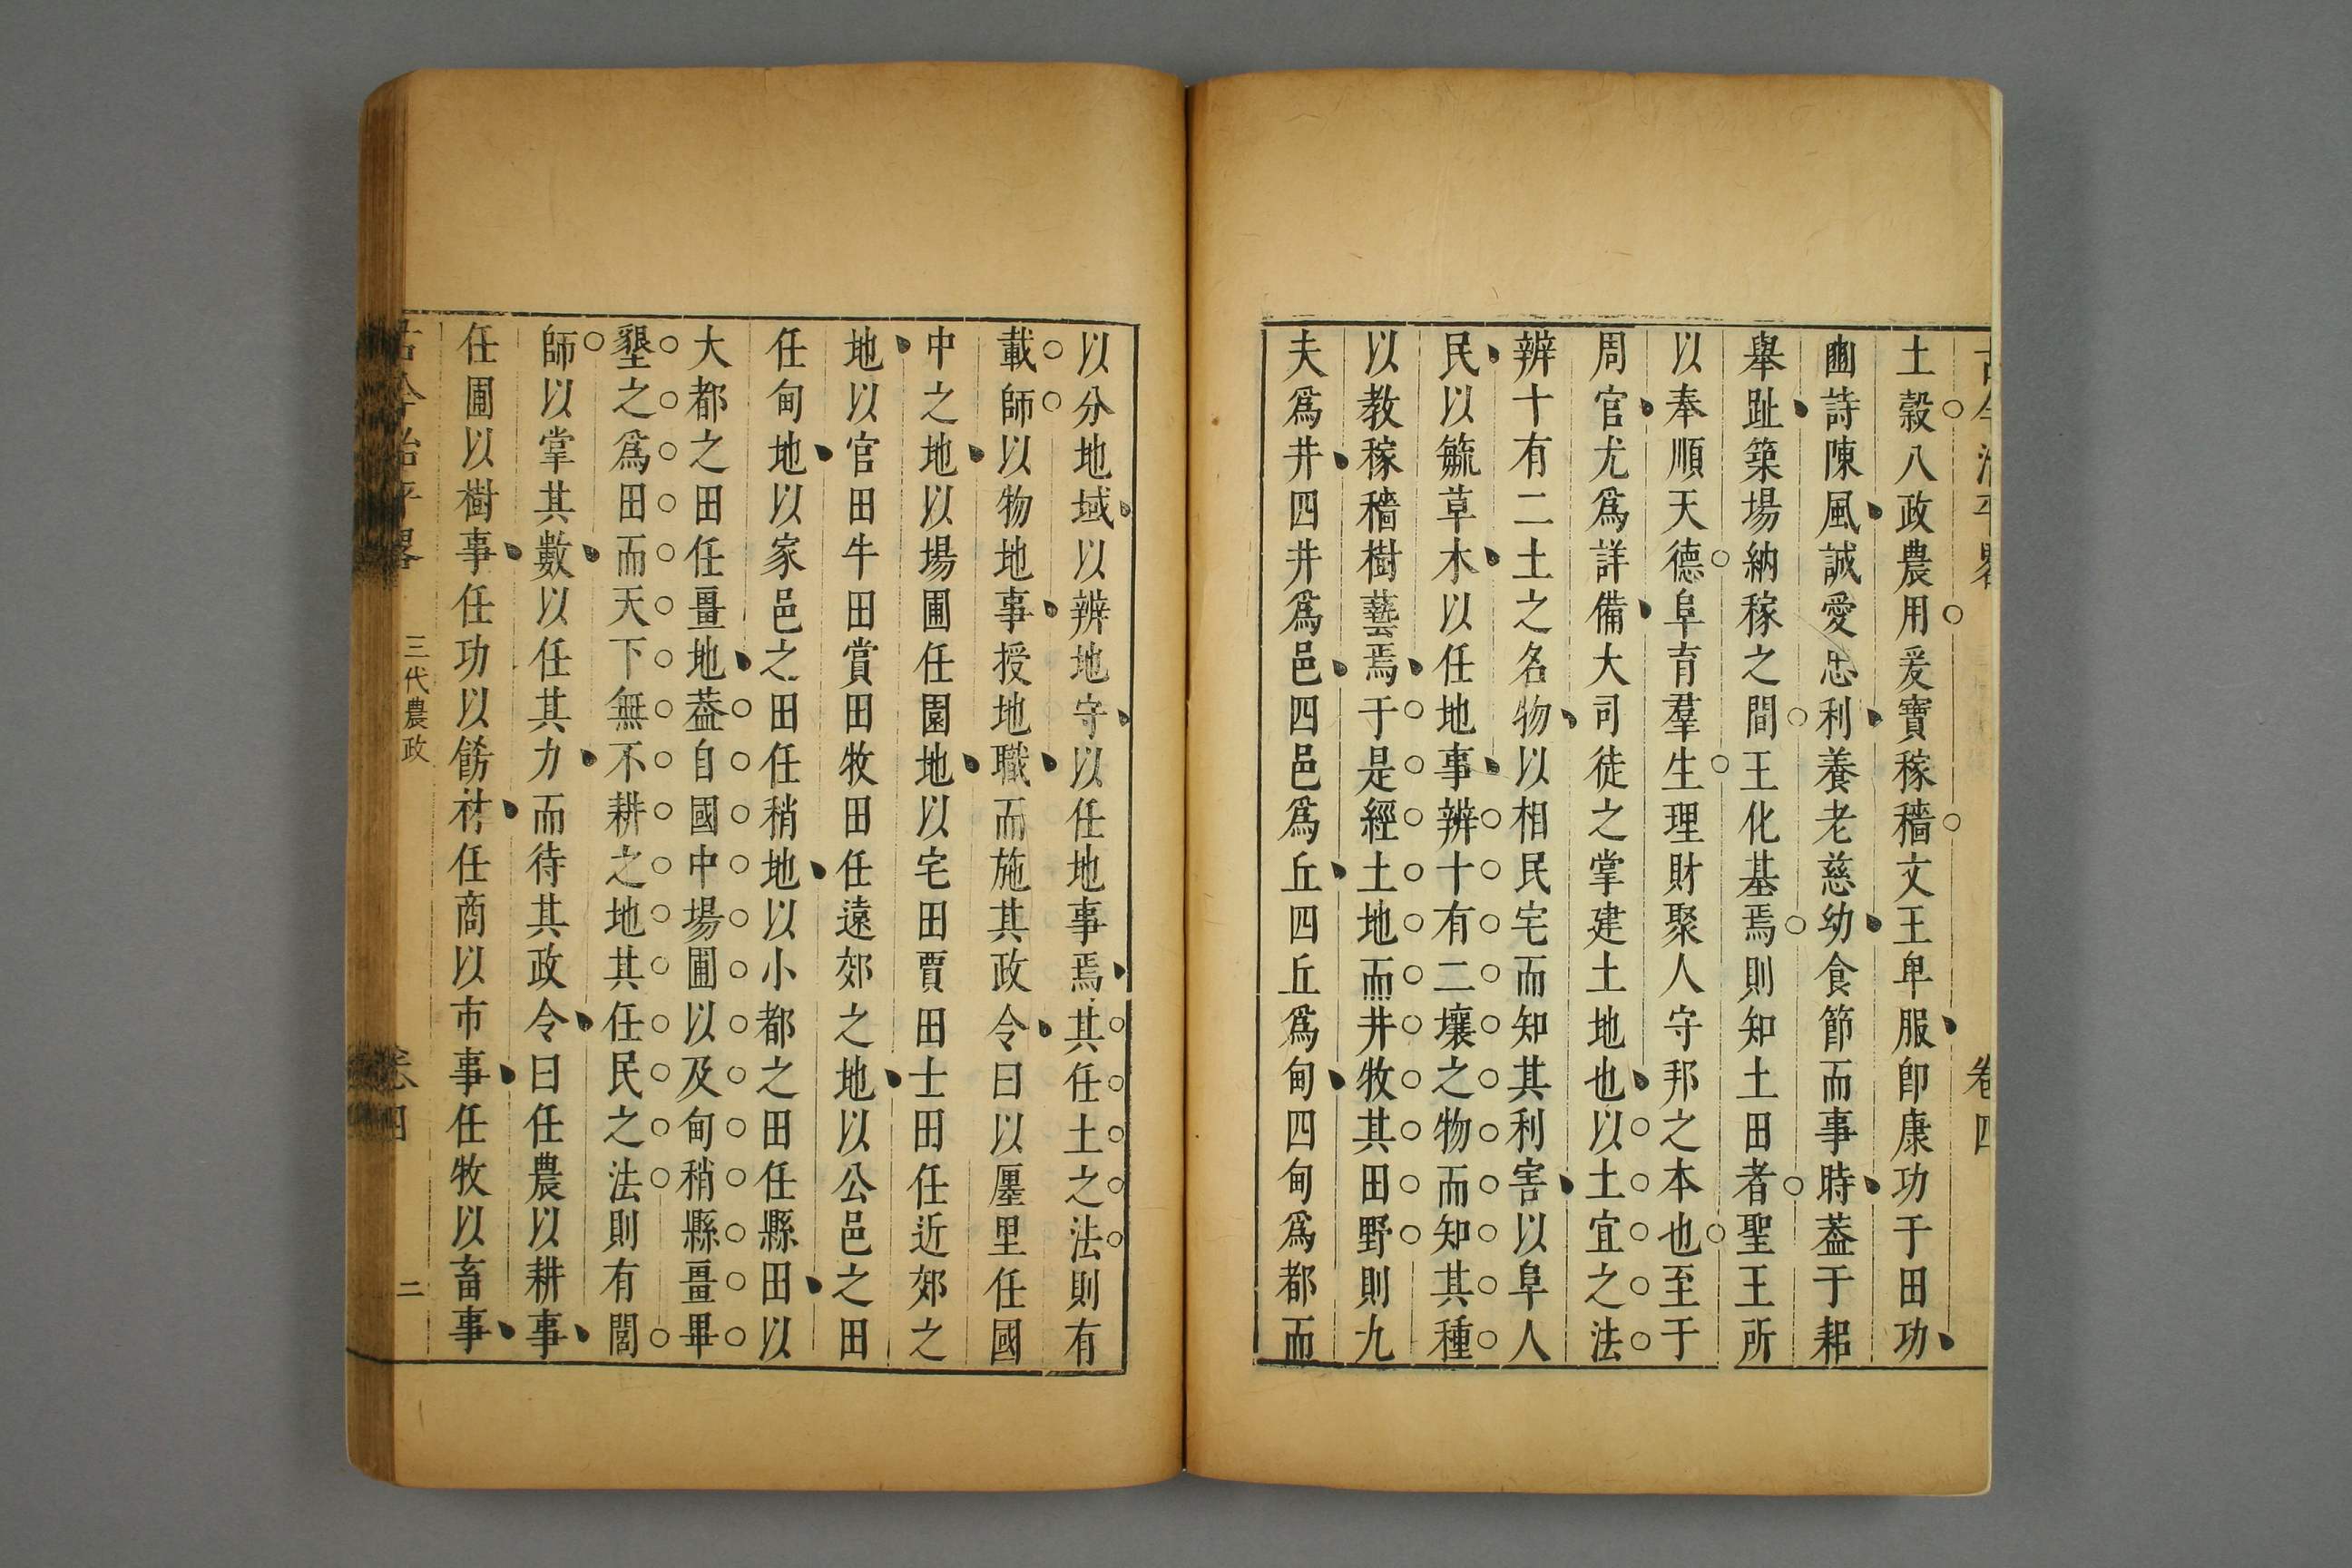 古今治平畧 卷四
土穀八政農用爰寶稼穡文王卑服卽康功于田功
豳詩陳風誠愛忠利養老慈幼食節而事時葢于耜
舉趾築場納稼之間王化基焉則知土田者聖王所
以奉順天德阜育羣生理財聚人守邦之本也至于
周官尤爲詳備大司徒之掌建土地也以土宜之法
辨十有二土之名物以相民宅而知其利害以阜人
民以毓草木以任地事辨十有二壤之物而知其種
以教稼穡樹藝焉于是經土地而井牧其田野則九
夫爲井四井爲邑四邑爲丘四丘爲甸四甸爲都而
以分地域以辨地守以任地事焉其任土之法則有
載師以物地事授地職而施其政令曰以廛里任國
中之地以場圃任園地以宅田賈田士田任近郊之
地以官田牛田賞田牧田任遠郊之地以公邑之田
任甸地以家邑之田任稍地以小都之田任縣田以
大都之田任畺地葢自國中場圃以及甸稍縣畺畢
墾之爲田而天下無不耕之地其任民之法則有閭
師以掌其數以任其力而待其政令曰任農以耕事
任圃以樹事任功以餝材任商以市事任牧以畜事
古今治平畧 三代農政 卷四 二